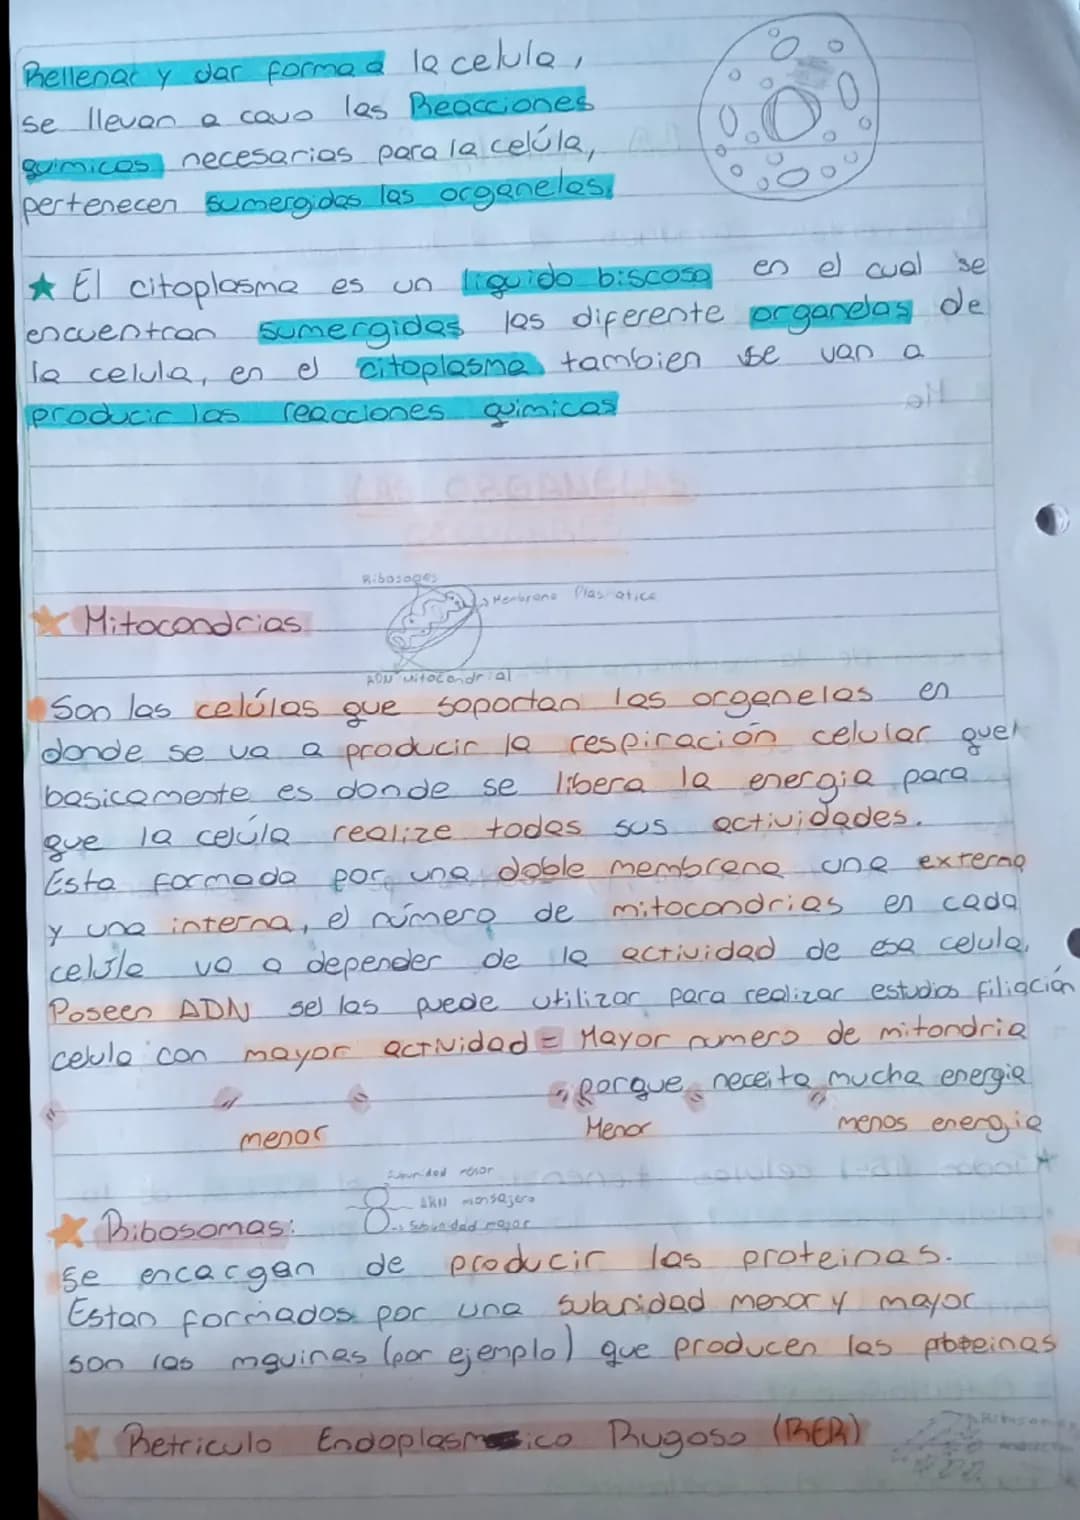 Rellenar y dar forma a la celula,
se llevan a cavo las Reacciones
quimicas necesarias para la celúla,
pertenecen sumergidas las organelas.
★ El citoplasma es un liquido biscoso en el cual se
encuentran sumergidas las diferente organelas de
la celula, en el citoplasma tambien se van a
producir las reacciones quimicas
Mitocondrias
Membrana Plasmatica
ADN Mitocondrial
Son las celúlas que soportan las organelas en
donde se va a producir la respiración celular que
basicamente es donde se libera la energia para
que la celúla realize todas sus actividades.
Esta formada por una doble membrana una externa
y una interna, el número de mitocondrias en cada
celúla va a depender de la actividad de esa celula.
Poseen ADN se las puede utilizar para realizar estudios filiación
celula con mayor actividad = Mayor numero de mitondria
porque neceita mucha energia
" " " " " "
menor Menor menos energia
Subunidad menor
ARN mensajero
Subunidad mayor
Ribosomas:
se encargan de producir las proteinas.
Estan formados por una subunidad menor y mayor
son las mquinas (por ejemplo) que producen las proteinas
Retriculo Endoplasmico Rugoso (RER)
Ribosomas